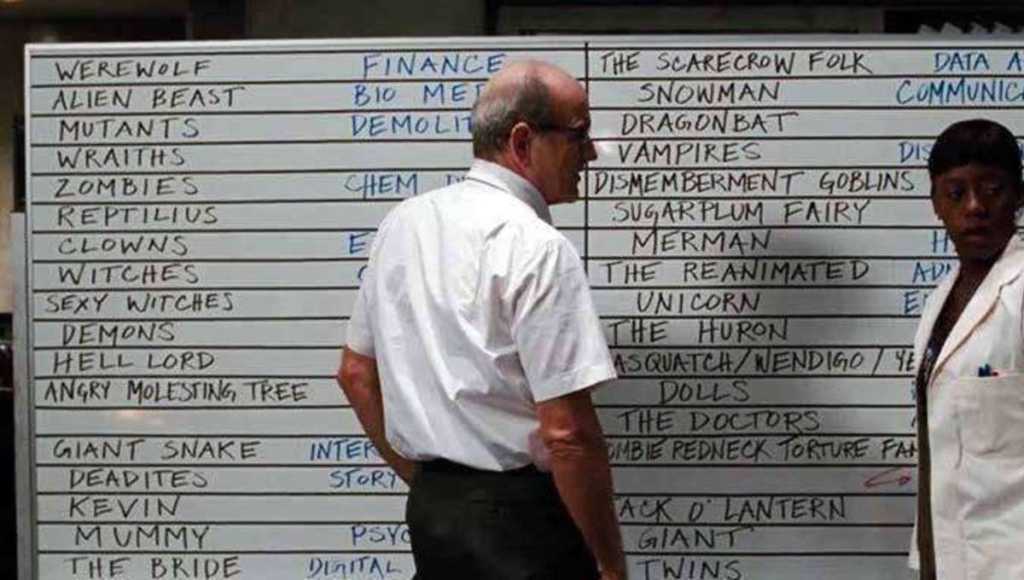 WEREWOLF FINANCE
ALIEN BEAST BIO MED
MUTANTS DEMOLIT
WRAITHS
ZOMBIES CHEM
REPTILIUS
CLOWNS
WITCHES
SEXY WITCHES
DEMONS
HELL LORD
ANGRY MOLESTING TREE
GIANT SNAKE INTER
DEADITES STORY
KEVIN
MUMMY PSYC
THE BRIDE DIGITAL
THE SCARECROW FOLK DATA A
SNOWMAN COMMUNICA
DRAGONBAT
VAMPIRES DIS
DISMEMBERMENT GOBLINS
SUGARPLUM FAIRY
MERMAN
THE REANIMATED AD
UNICORN
THE HURON
ASQUATCH/WENDIGO/YE
DOLLS
THE DOCTORS
OMBIE REDNECK TORTURE FAM
ACK O' LANTERN
GIANT
TWINS